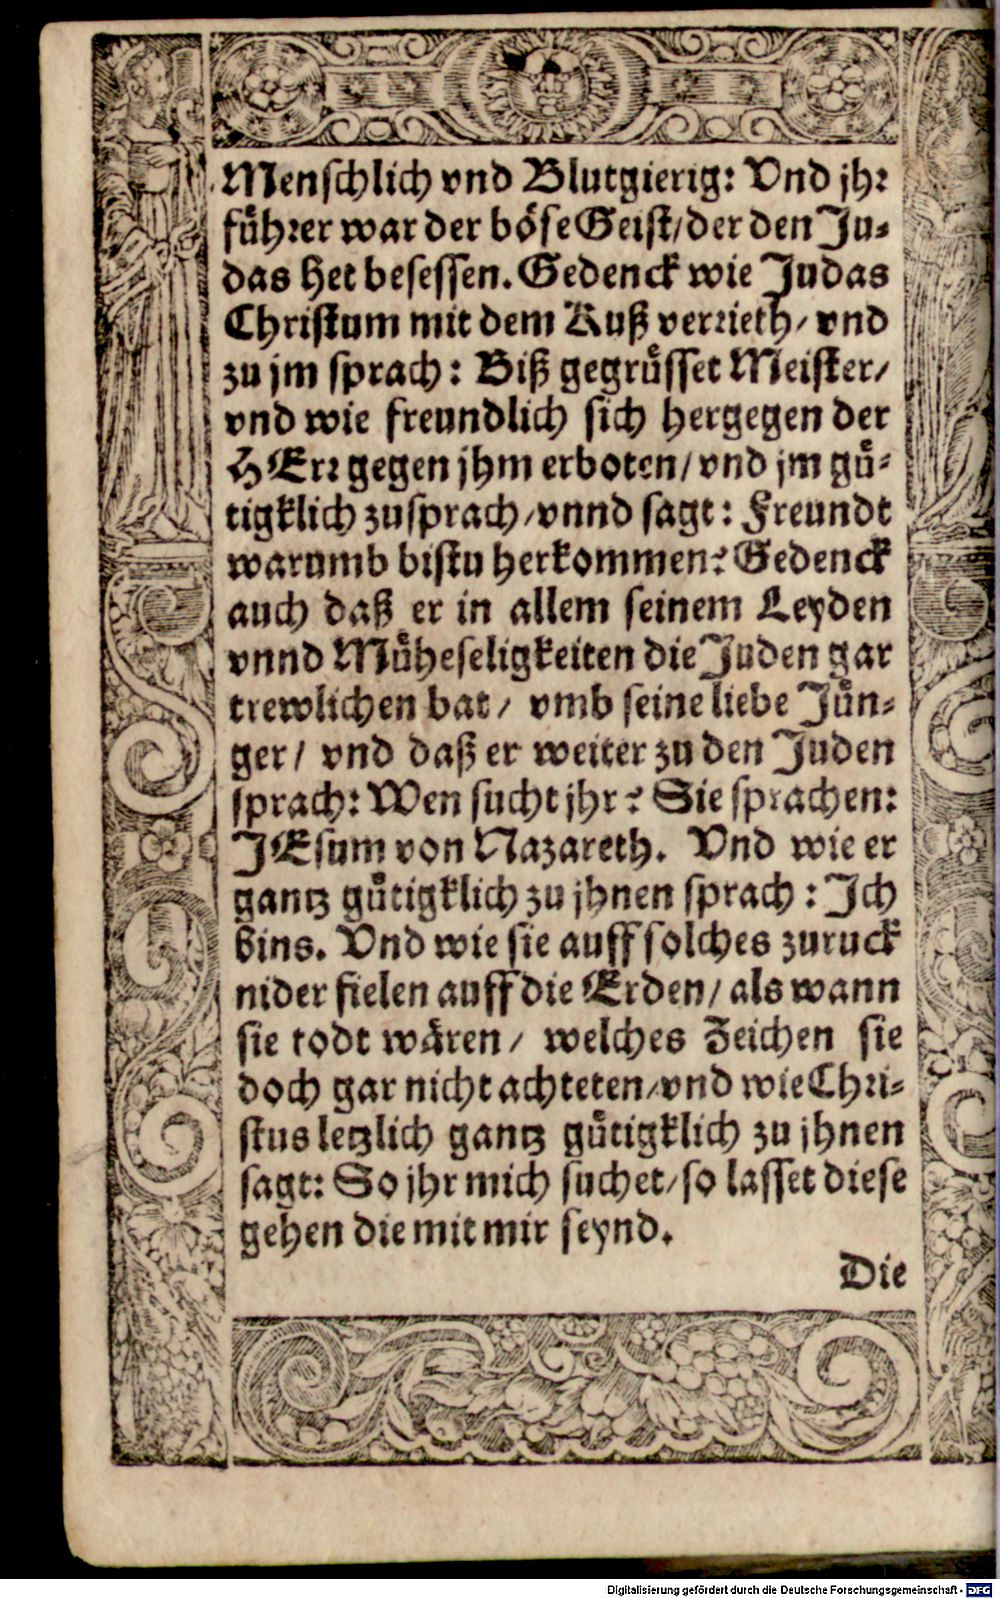 Menschlich vnd Blutgierig: Vnd jhr
fuͤhrer war der boͤse Geist/ der den Ju-
das het besessen. Gedenck wie Judas
Christum mit dem Kuß verrieth/ vnd
zu jm sprach: Biß gegruͤsset Meister/
vnd wie freundlich sich hergegen der
HErr gegen jhm erboten/ vnd jm guͤ-
tigklich zusprach/ vnnd sagt: Freundt
warumb bistu herkommen? Gedenck
auch daß er in allem seinem Leyden
vnnd Muͤheseligkeiten die Juden gar
trewlichen bat/ vmb seine liebe Juͤn-
ger/ vnd daß er weiter zu den Juden
sprach: Wen sucht jhr? Sie sprachen:
JEsum von Nazareth. Vnd wie er
gantz guͤtigklich zu jhnen sprach: Ich
bins. Vnd wie sie auff solches zuruck
nider fielen auff die Erden/ als wann
sie todt waͤren/ welches Zeichen sie
doch gar nicht achteten/ vnd wie Chri-
stus letzlich gantz guͤtigklich zu jhnen
sagt: So jhr mich suchet/ so lasset diese
gehen die mit mir seynd.
Die
Digitalisierung gefördert durch die Deutsche Forschungsgemeinschaft - DFG